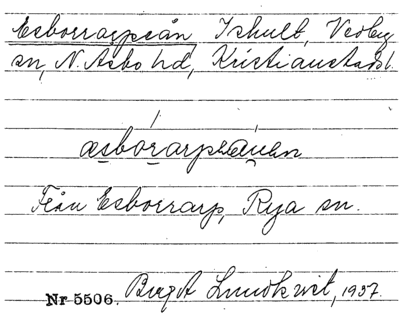 Esborrarpsån Ishult, Vedby
sn, N. Åsbo hd, Kristianstads l.
æsbòrarpsåuen
Från Esborrarp, Rya sn.
Nr 5506. Birgit Lundkvist, 1937.